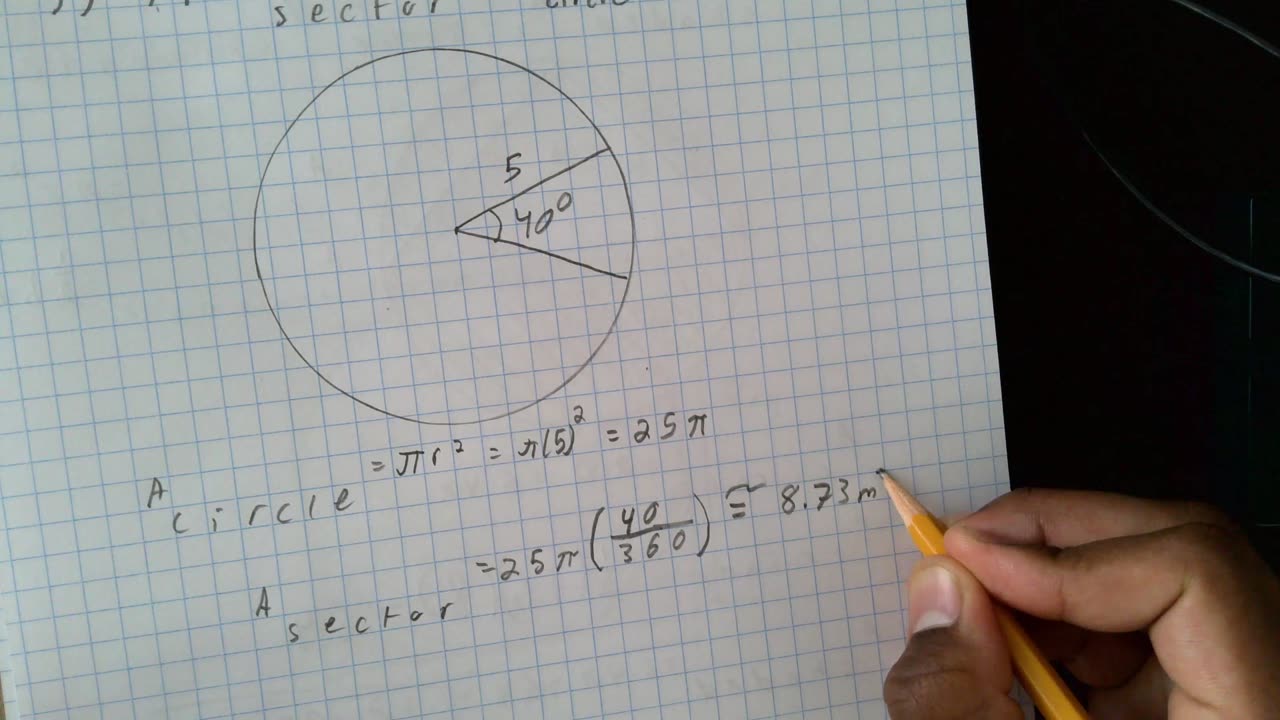 sector circle
5
40°
A circle = πr² = π(5)² = 25π
A sector = 25π(40/360) ≅ 8.73m